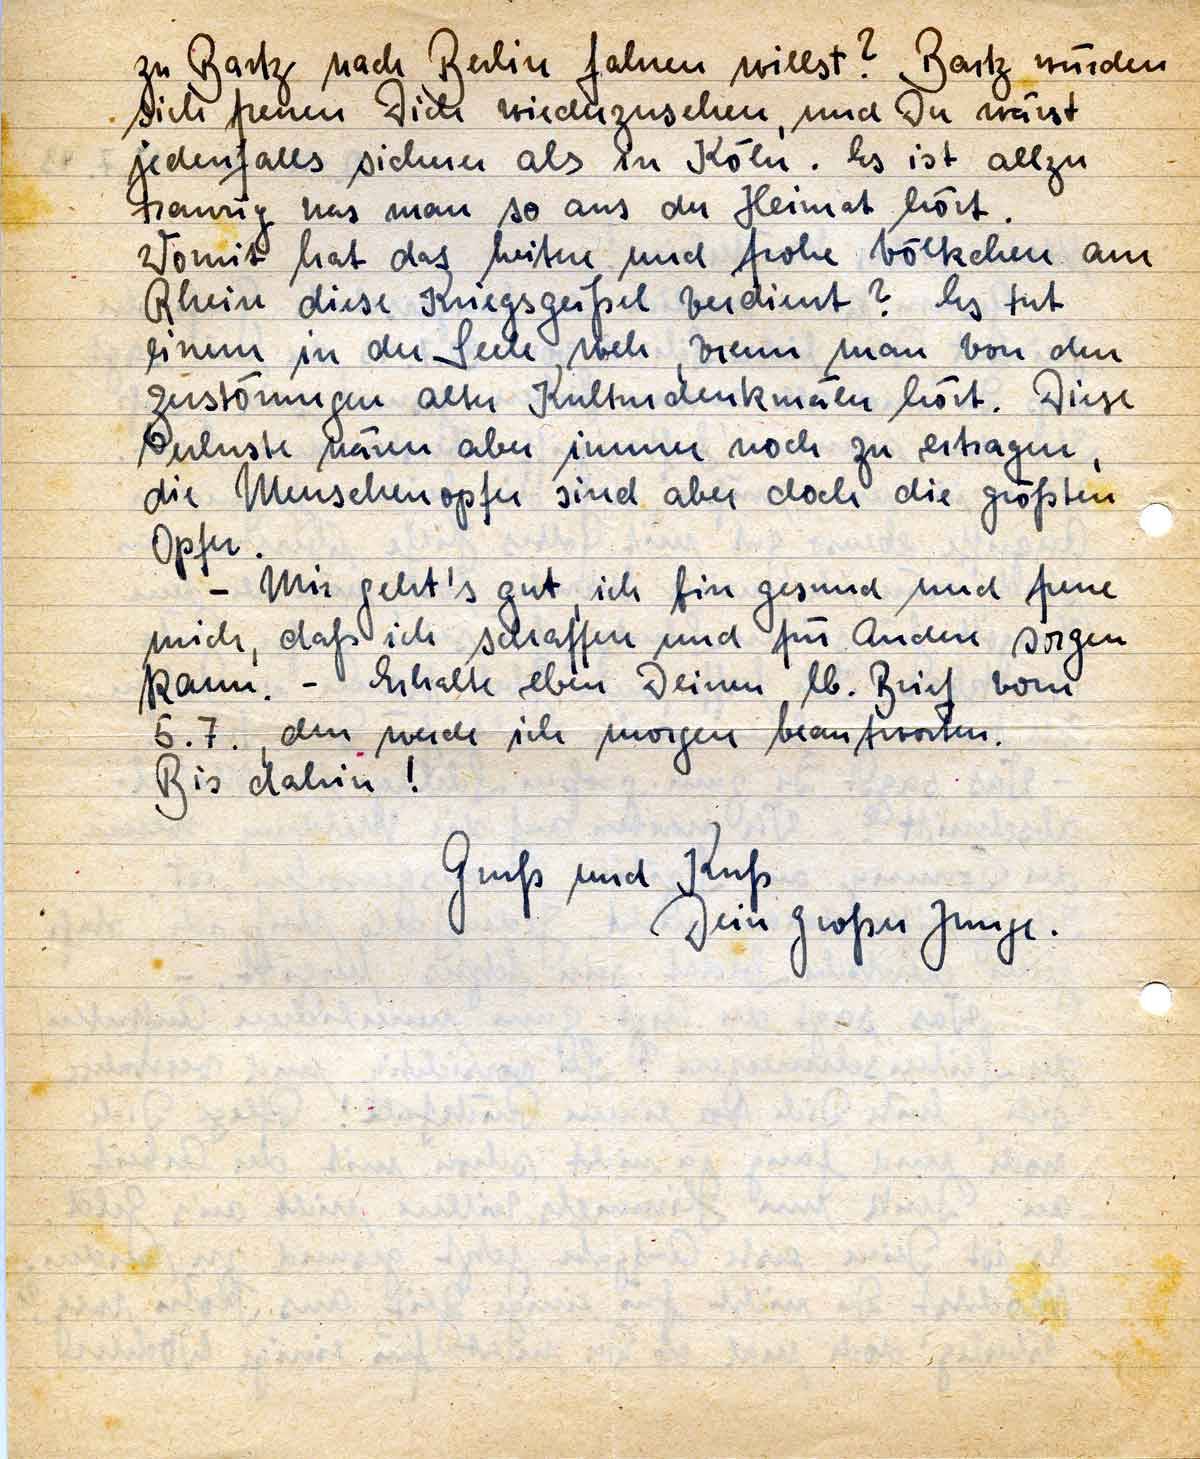 zu Bartz nach Berlin fahren willst? Bartz würden
sich freuen Dich wiederzusehen, und Du wärst
jedenfalls sicherer als in Köln. Es ist allzu
traurig was man so aus der Heimat hört.
Womit hat das heitere und frohe Völkchen am
Rhein diese Kriegsgeißel verdient? Es tut
einem in der Seele weh, wenn man von den
Zerstörungen alter Kulturdenkmäler hört. Diese
Verluste wären aber immer noch zu ertragen,
die Menschenopfer sind aber doch die größten
Opfer.
- Mir geht's gut, ich bin gesund und freue
mich, daß ich schaffen und für Andere sorgen
kann. - Erhalte eben Deinen lb. Brief vom
5.7., den werde ich morgen beantworten.
Bis dahin!
Gruß und Kuß
Dein großer Junge.